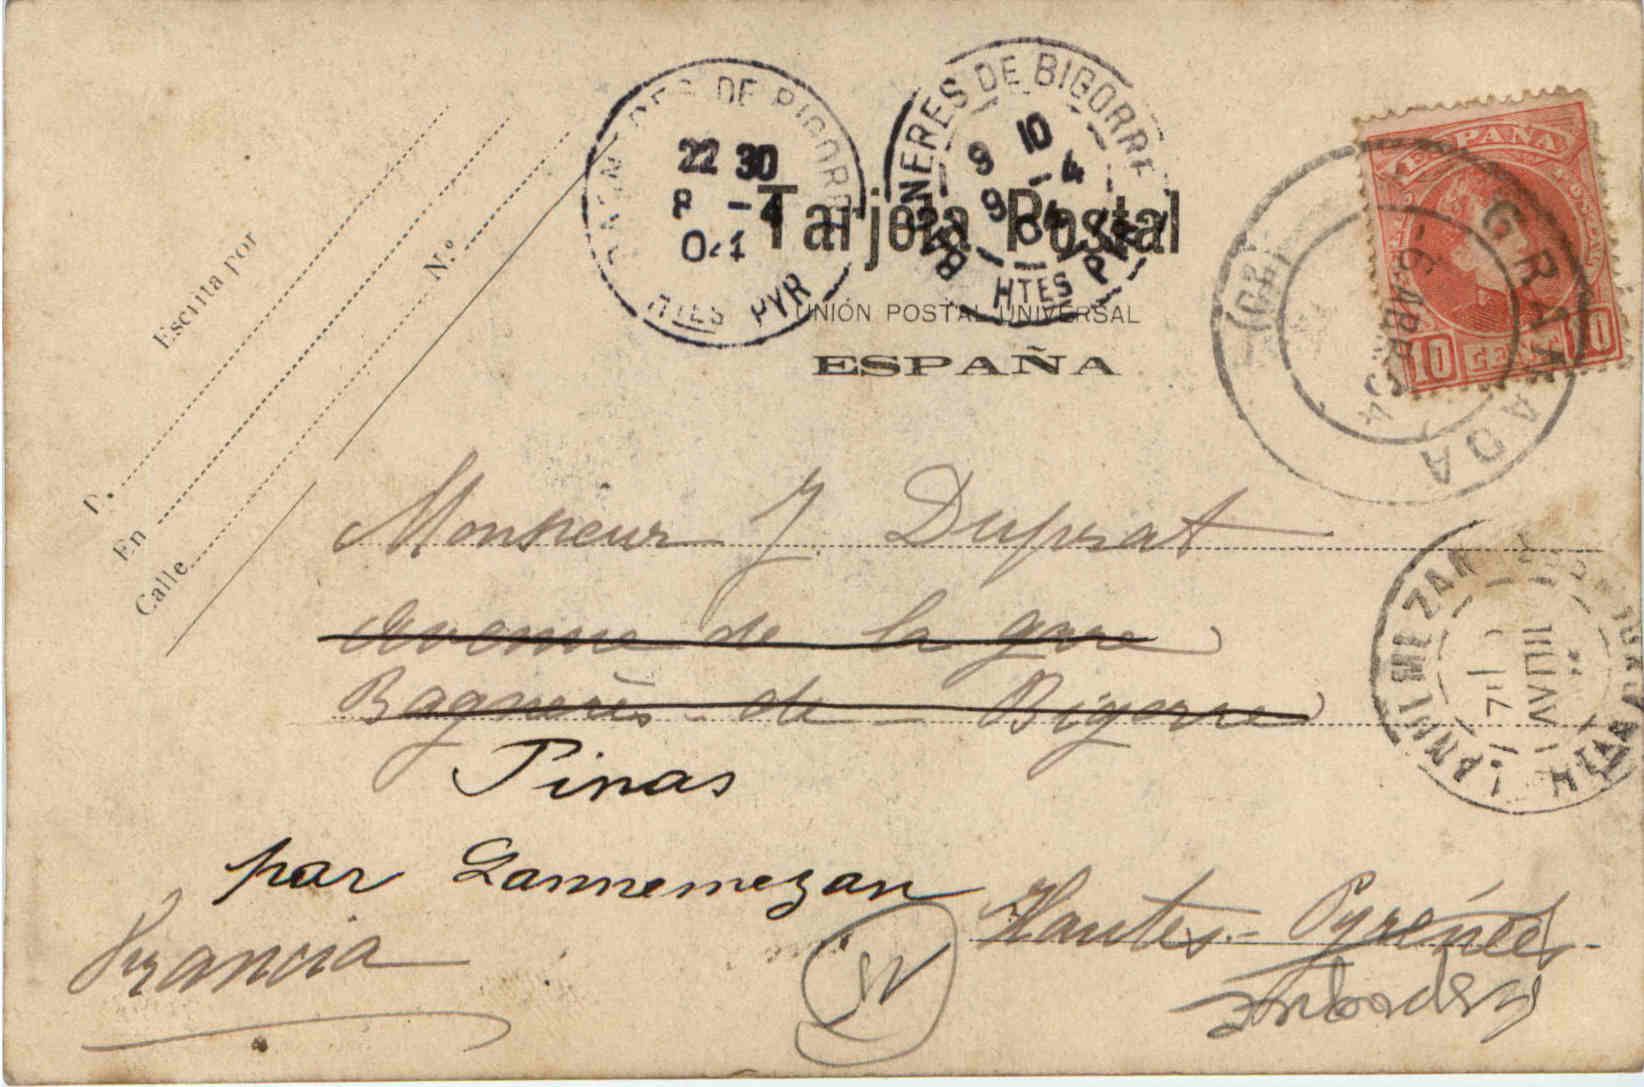 Tarjeta Postal
UNIÓN POSTAL UNIVERSAL
ESPAÑA
Escrita por
D.
En
Calle
N.º
BAGNERES DE BIGORRE
22 30
8 -4
04
HTES PYR
BAGNERES DE BIGORRE
9 10
9 -4
04
HTES PYR
ESPAÑA
10 CENT 10
GRANADA
6 ABR 04
Monsieur J. Duprat
Avenue de la gare
Bagnères-de-Bigorre
Pinas
par Lannemezan
Hautes-Pyrénées
Francia
LANNEMEZAN